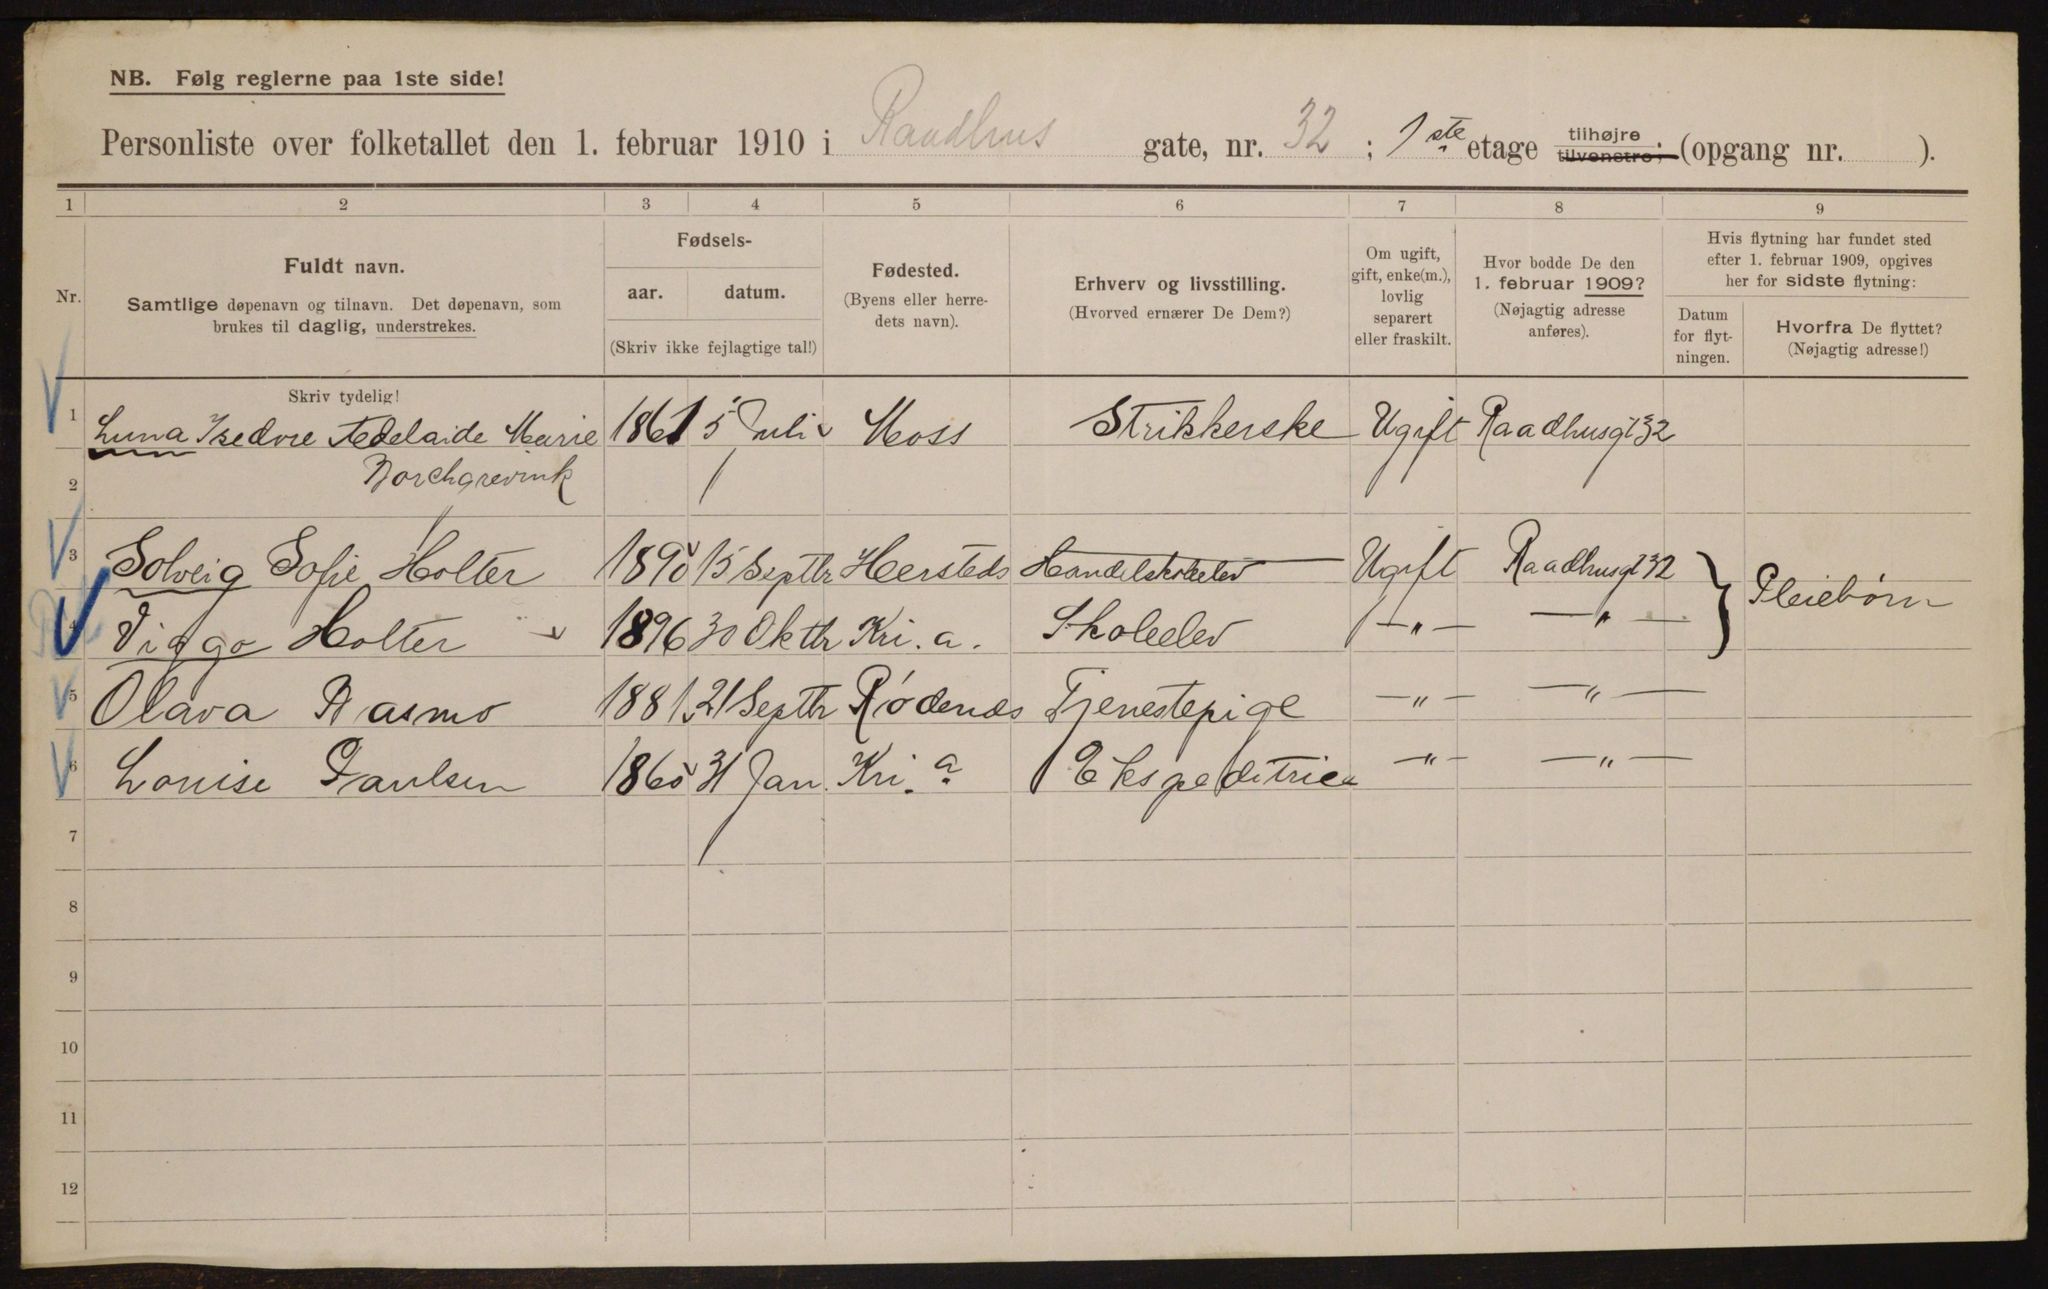 NB. Følg reglerne paa 1ste side!
Personliste over folketallet den 1. februar 1910 i Raadhus gate, nr. 32 ; 1ste etage tilhøjre tilvenstre; (opgang nr. ).
1 2 3 4 5 6 7 8 9
Nr.
Fuldt navn.
Samtlige døpenavn og tilnavn. Det døpenavn, som
brukes til daglig, understrekes.
Fødsels-
aar. datum.
(Skriv ikke fejlagtige tal!)
Fødested.
(Byens eller herre-
dets navn).
Erhverv og livsstilling.
(Hvorved ernærer De Dem?)
Om ugift,
gift, enke(m.),
lovlig
separert
eller fraskilt.
Hvor bodde De den
1. februar 1909?
(Nøjagtig adresse
anføres).
Hvis flytning har fundet sted
efter 1. februar 1909, opgives
her for sidste flytning:
Datum
for flyt-
ningen.
Hvorfra De flyttet?
(Nøjagtig adresse!)
Skriv tydelig!
1 Luna Isedore Adelaide Marie 1861 5 Juli Moss Strikkerske Ugift Raadhusgt 32
2 Borchgrevink
3 Solveig Sofie Holter 1890 15 Septbr Hersteds Handelsskoleelev Ugift Raadhusgt 32
4 Viggo Holter 1896 30 Oktbr Kri.a. Skoleelev —"— —"— Pleiebørn
5 Olava Basmo 1881 21 Septbr Rødenæs Tjenestepige —"— —"—
6 Louise Paulsen 1860 31 Jan. Kri.a Ekspeditrice —"— —"—
7
8
9
10
11
12